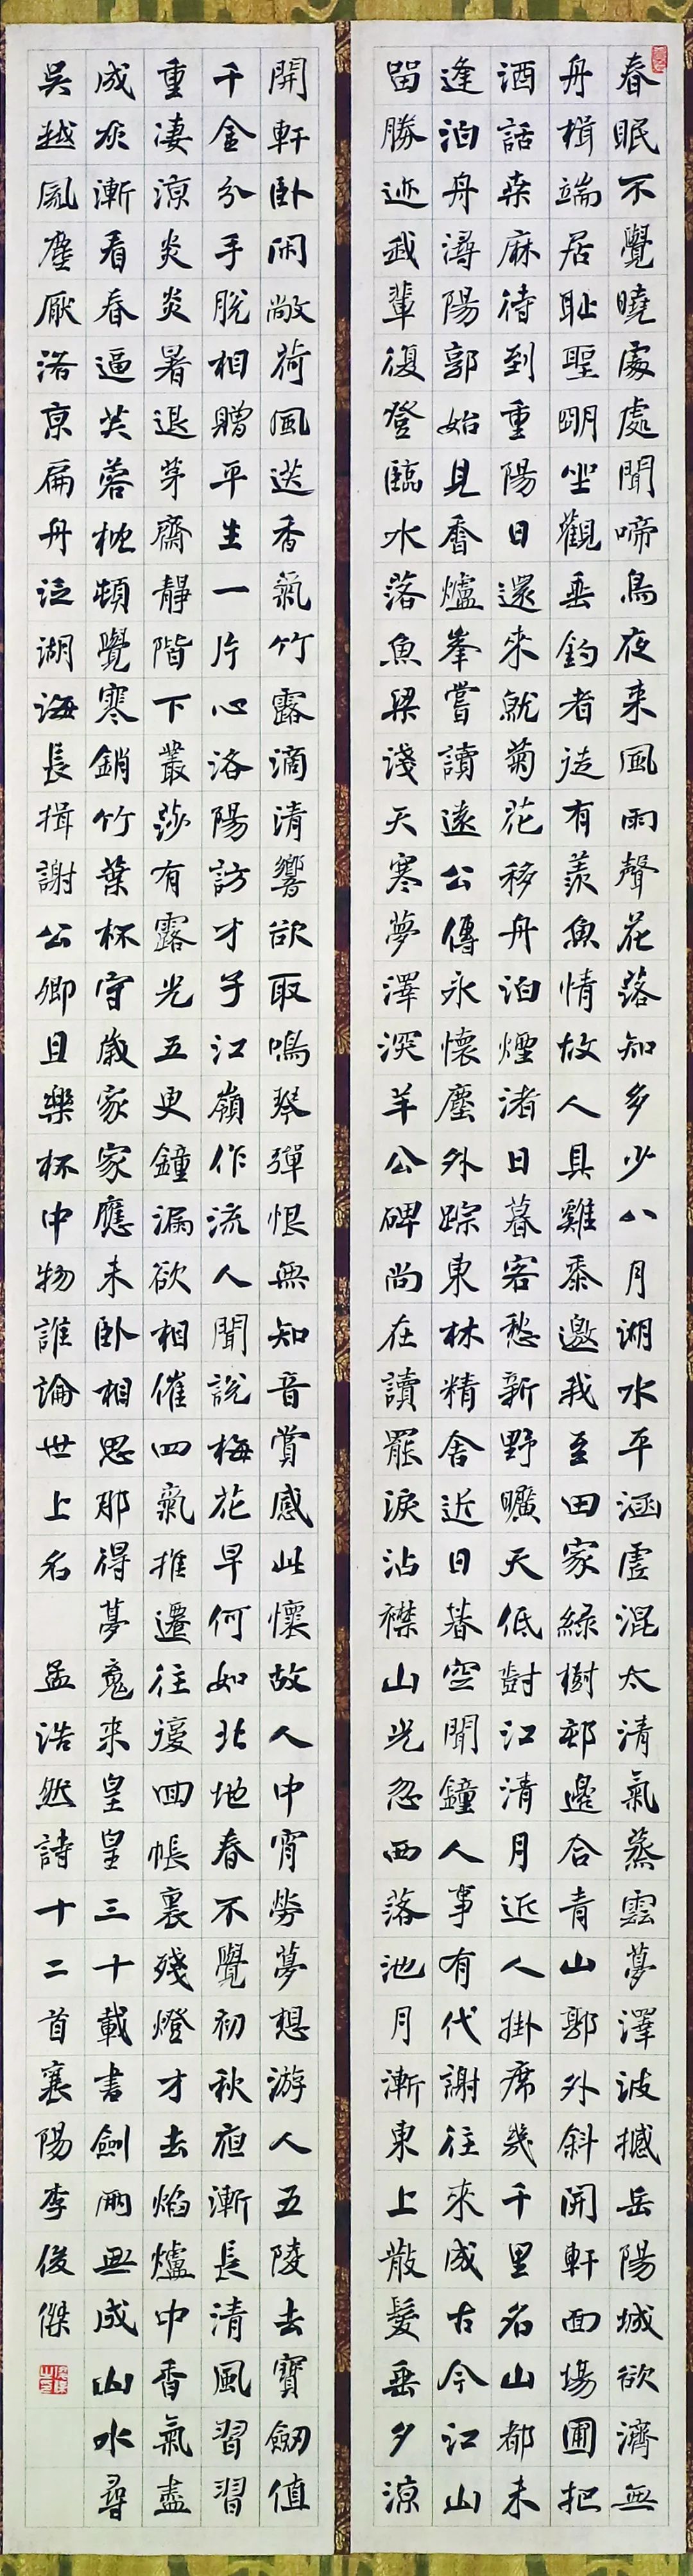 春眠不覺曉處處聞啼鳥夜来風雨聲花落知多少八月湖水平涵虛混太清氣蒸雲夢澤波撼岳陽城欲濟無
舟楫端居耻聖明坐觀垂釣者徒有羨魚情故人具雞黍邀我至田家綠樹邨邊合青山郭外斜開軒面場圃把
酒話桒麻待到重陽日還來就菊花移舟泊煙渚日暮客愁新野曠天低樹江清月近人掛席幾千里名山都未
逢泊舟潯陽郭始見香爐峯嘗讀遠公傳永懷塵外踪東林精舍近日暮空聞鐘人事有代謝往來成古今江山
留勝迹我輩復登臨水落魚梁淺天寒夢澤深羊公碑尚在讀罷淚沾襟山光忽西落池月漸東上散髮垂夕涼
開軒卧閑敞荷風送香氣竹露滴清響欲取鳴琴彈恨無知音賞感此懷故人中宵勞夢想游人五陵去寶劒值
千金分手脫相贈平生一片心洛陽訪才子江嶺作流人聞說梅花早何如北地春不覺初秋夜漸長清風習習
重凄涼炎炎暑退茅齋靜階下叢莎有露光五更鐘漏欲相催四氣推遷往復回帳裏殘燈才去焰爐中香氣盡
成灰漸看春逼芙蓉枕頓覺寒銷竹葉杯守歲家家應未卧相思那得夢魂来皇皇三十載書劍兩無成山水尋
吳越風塵厭洛京扁舟泛湖海長揖謝公卿且樂杯中物誰論世上名 孟浩然詩十二首襄陽李俊傑